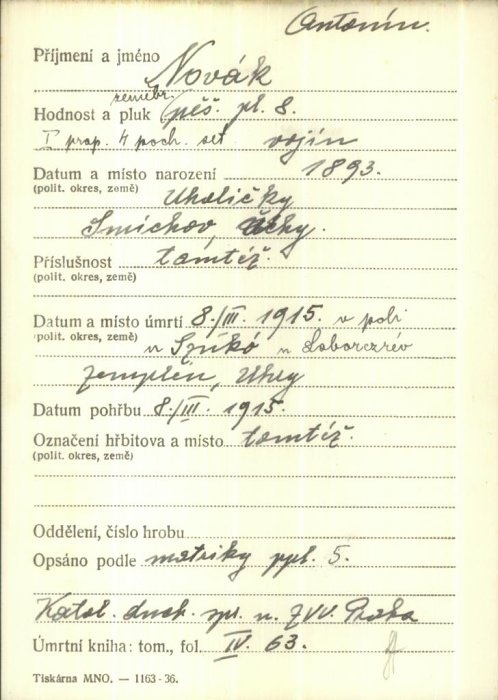 Antonín.
Příjmení a jméno Novák
zeměbr.
Hodnost a pluk pěš. pl. 8.
I prap. 4 poch. set vojín
Datum a místo narození 1893.
(polit. okres, země) Uholičky
Smíchov, Čechy.
Příslušnost tamtéž.
(polit. okres, země)
Datum a místo úmrtí 8./III. 1915. v poli
(polit. okres, země) u Szukó u Laborczrév
Zemplén, Uhry
Datum pohřbu 8./III. 1915.
Označení hřbitova a místo tamtéž.
(polit. okres, země)
Oddělení, číslo hrobu
Opsáno podle matriky ppl. 5.
Katol. duch. spr. u ZVV. Praha
Úmrtní kniha: tom., fol. IV. 63.
Tiskárna MNO. — 1163 - 36.